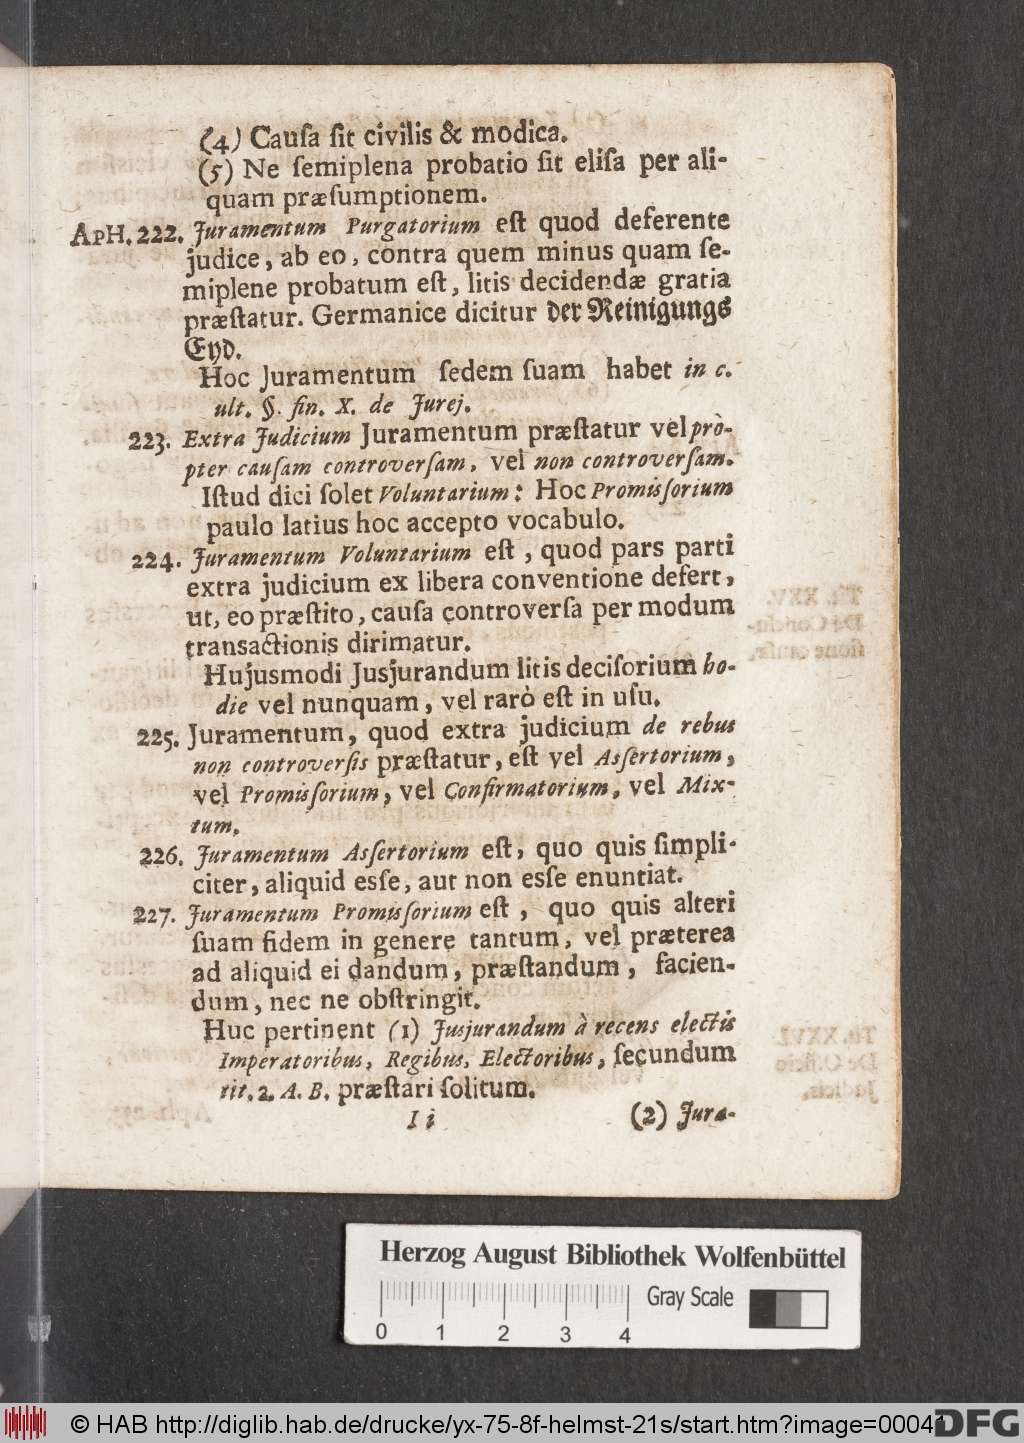 (4) Cauſa ſit civilis & modica.
(5) Ne ſemiplena probatio ſit eliſa per ali-
quam præſumptionem.
APH. 222. Juramentum Purgatorium eſt quod deferente
judice, ab eo, contra quem minus quam ſe-
miplene probatum eſt, litis decidendæ gratia
præſtatur. Germanice dicitur der Reinigungs
Eyd.
Hoc Juramentum ſedem ſuam habet in c.
ult. §. fin. X. de Jurej.
223. Extra Judicium Juramentum præſtatur vel prò-
pter cauſam controverſam, vel non controverſam.
Iſtud dici ſolet Voluntarium: Hoc Promiſſorium
paulo latius hoc accepto vocabulo.
224. Juramentum Voluntarium eſt, quod pars parti
extra judicium ex libera conventione defert,
ut, eo præſtito, cauſa controverſa per modum
transactionis dirimatur.
Hujusmodi Jusjurandum litis deciſorium ho-
die vel nunquam, vel rarò eſt in uſu.
225. Juramentum, quod extra judicium de rebus
non controverſis præſtatur, eſt vel Aſſertorium,
vel Promiſſorium, vel Confirmatorium, vel Mix-
tum.
226. Juramentum Aſſertorium eſt, quo quis ſimpli-
citer, aliquid eſſe, aut non eſſe enuntiat.
227. Juramentum Promiſſorium eſt, quo quis alteri
ſuam fidem in genere tantum, vel præterea
ad aliquid ei dandum, præſtandum, facien-
dum, nec ne obſtringit.
Huc pertinent (1) Jusjurandum à recens electis
Imperatoribus, Regibus, Electoribus, ſecundum
tit. 2. A. B. præſtari ſolitum.
I i (2) Jura-
Herzog August Bibliothek Wolfenbüttel
Gray Scale
0 1 2 3 4
© HAB http://diglib.hab.de/drucke/yx-75-8f-helmst-21s/start.htm?image=00041
DFG